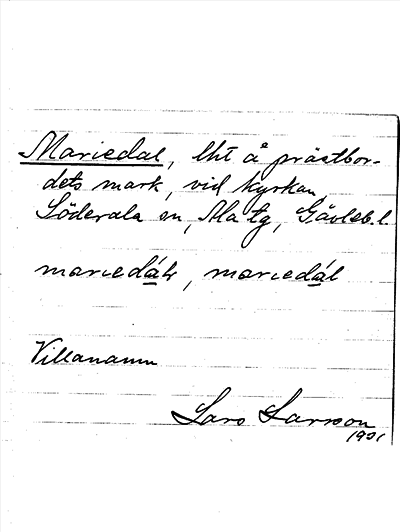 Mariedal, lht å prästbor-
dets mark, vid kyrkan,
Söderala sn, Ala tg, Gävleb. l.
mariedál, mariedál
Villanamn
Lars Larsson